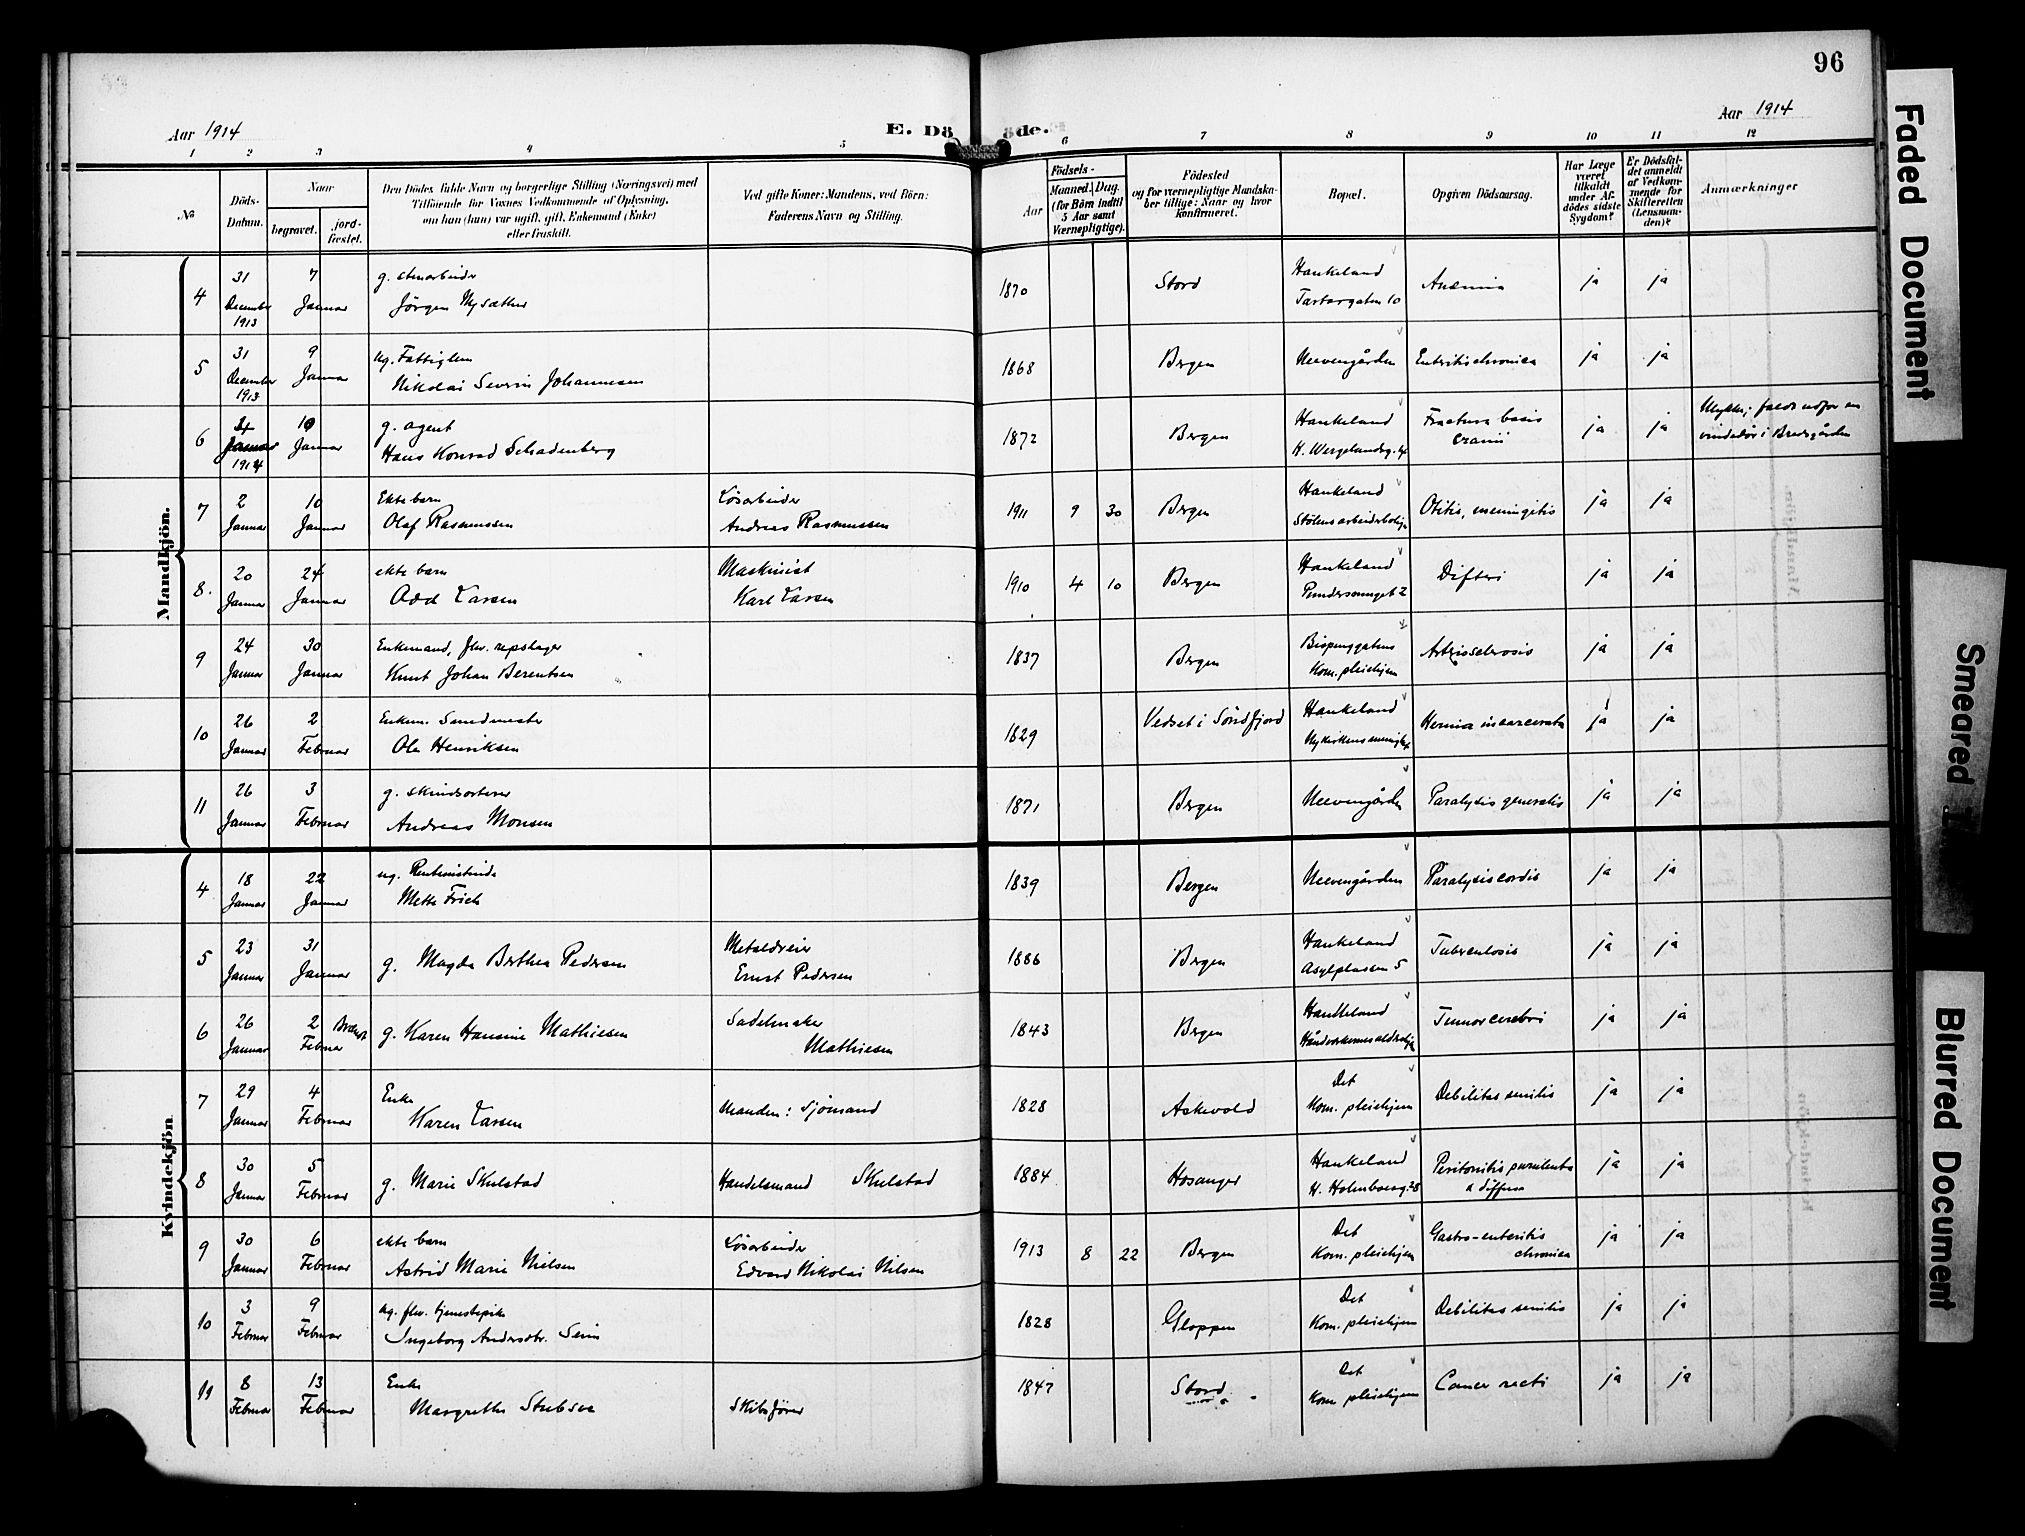 96
Aar 1914
E. Dö
öde.
Aar 1914
1 2 3 4 5 6 7 8 9 10 11 12
No
Döds-
Datum.
Naar
begravet.
jord-
fæstet.
Den Dödes fulde Navn og borgerlige Stilling (Næringsvei) med
Tilföiende for Voxnes Vedkommende af Oplysning,
om han (hun) var ugift, gift, Enkemand (Enke)
eller fraskilt.
Ved gifte Koner: Mandens, ved Börn:
Faderens Navn og Stilling.
Födsels-
Aar
Maaned. Dag.
(for Börn indtil
5 Aar samt
Værnepligtige).
Födested
og for værnepligtige Mandska-
ber tillige: Naar og hvor
konfirmeret.
Bopæl.
Opgiven Dödsaarsag.
Har Læge
været
tilkaldt
under Af-
dödes sidste
Sygdom?
Er Dödsfal-
det anmeldt
af Vedkom-
mende for
Skifteretten
(Lensman-
den)?
Anmærkninger
Mandkjön.
4
31 December 1913
7 Januar
g.
Jörgen
1870
Stord
Haukeland
Tartargaten 10
Anæmia
ja
ja
5
31 December 1913
9 Januar
ug. Fattiglem
Nikolai Severin Johannesen
1868
Bergen
Neevengården
Enteritis chronica
ja
ja
6
Januar 1914
10 Januar
g. agent
Hans Konrad Schadenberg
1872
Bergen
Haukeland
H. Wergelandsg.
Fractura basis
cranii
ja
ja
Ulykke; faldt udfor en
vindedör i Bredsgården
7
2 Januar
10 Januar
Ekte barn
Olaf Rasmussen
Løsarbeider
Andreas Rasmussen
1911 9 30
Bergen
Haukeland
Stölens arbeiderbolig
Otitis, meningitis
ja
ja
8.
20 Januar
24 Januar
ekte barn
Odd Larsen
Maskinist
Karl Larsen
1910 4 10
Bergen
Haukeland
Difteri
ja
ja
9
24 Januar
30 Januar
Enkemand, fhv. repslager
Knut Johan Berentsen
1837
Bergen
Kom. pleiehjem
Arteriosclerosis
ja
ja
10
26 Januar
2 Februar
Enkem.
Ole Henriksen
1829
Vedset i Søndfjord
Haukeland
Hernia incarcerata
ja
ja
11
26 Januar
3 Februar
g. skindsorterer
Andreas Monsen
1871
Bergen
Neevengården
Paralysis generalis
ja
ja
Kvindekjön
4
18 Januar
22 Januar
ug. Rentenistinde
Mette Frich
1839
Bergen
Neevengården
Paralysis cordis
ja
ja
5
23 Januar
31 Januar
g. Magda Berthea Pedersen
Metaldreier
Ernst Pedersen
1886
Bergen
Haukeland
Asylplassen 5
Tuberculosis
ja
ja
6
26 Januar
2 Februar
g. Karen Hansine Mathiesen
Sadelmaker
Mathiesen
1843
Bergen
Haukeland
Tumor cerebri
ja
ja
7
29 Januar
4 Februar
Enke
Karen Larsen
Manden: Sjømand
1828
Askevold
Det
Kom. pleiehjem
Debilitas senilis
ja
ja
8
30 Januar
5 Februar
g. Marie Skulstad
Handelsmand Skulstad
1884
Hosanger
Haukeland
H. Holmboesg. 28
Peritonitis purulenta
a diffusa
ja
ja
9
30 Januar
6 Februar
ekte barn
Astrid Marie Nielsen
Løsarbeider
Edvard Nikolai Nilsen
1913 8 22
Bergen
Det
Kom. pleiehjem
Gastro-enteritis
chronica
ja
ja
10
3 Februar
9 Februar
ug. fhv. tjenestepike
Ingeborg Andersdtr. Seim
1828
Gloppen
Det
Kom. pleiehjem
Debilitas senilis
ja
ja
11
8 Februar
13 Februar
Enke
Margrethe
Skibsfører
1847
Stord
Det
Kom. pleiehjem
Cancer recti
ja
ja
Faded Document
Smeared
Blurred Document